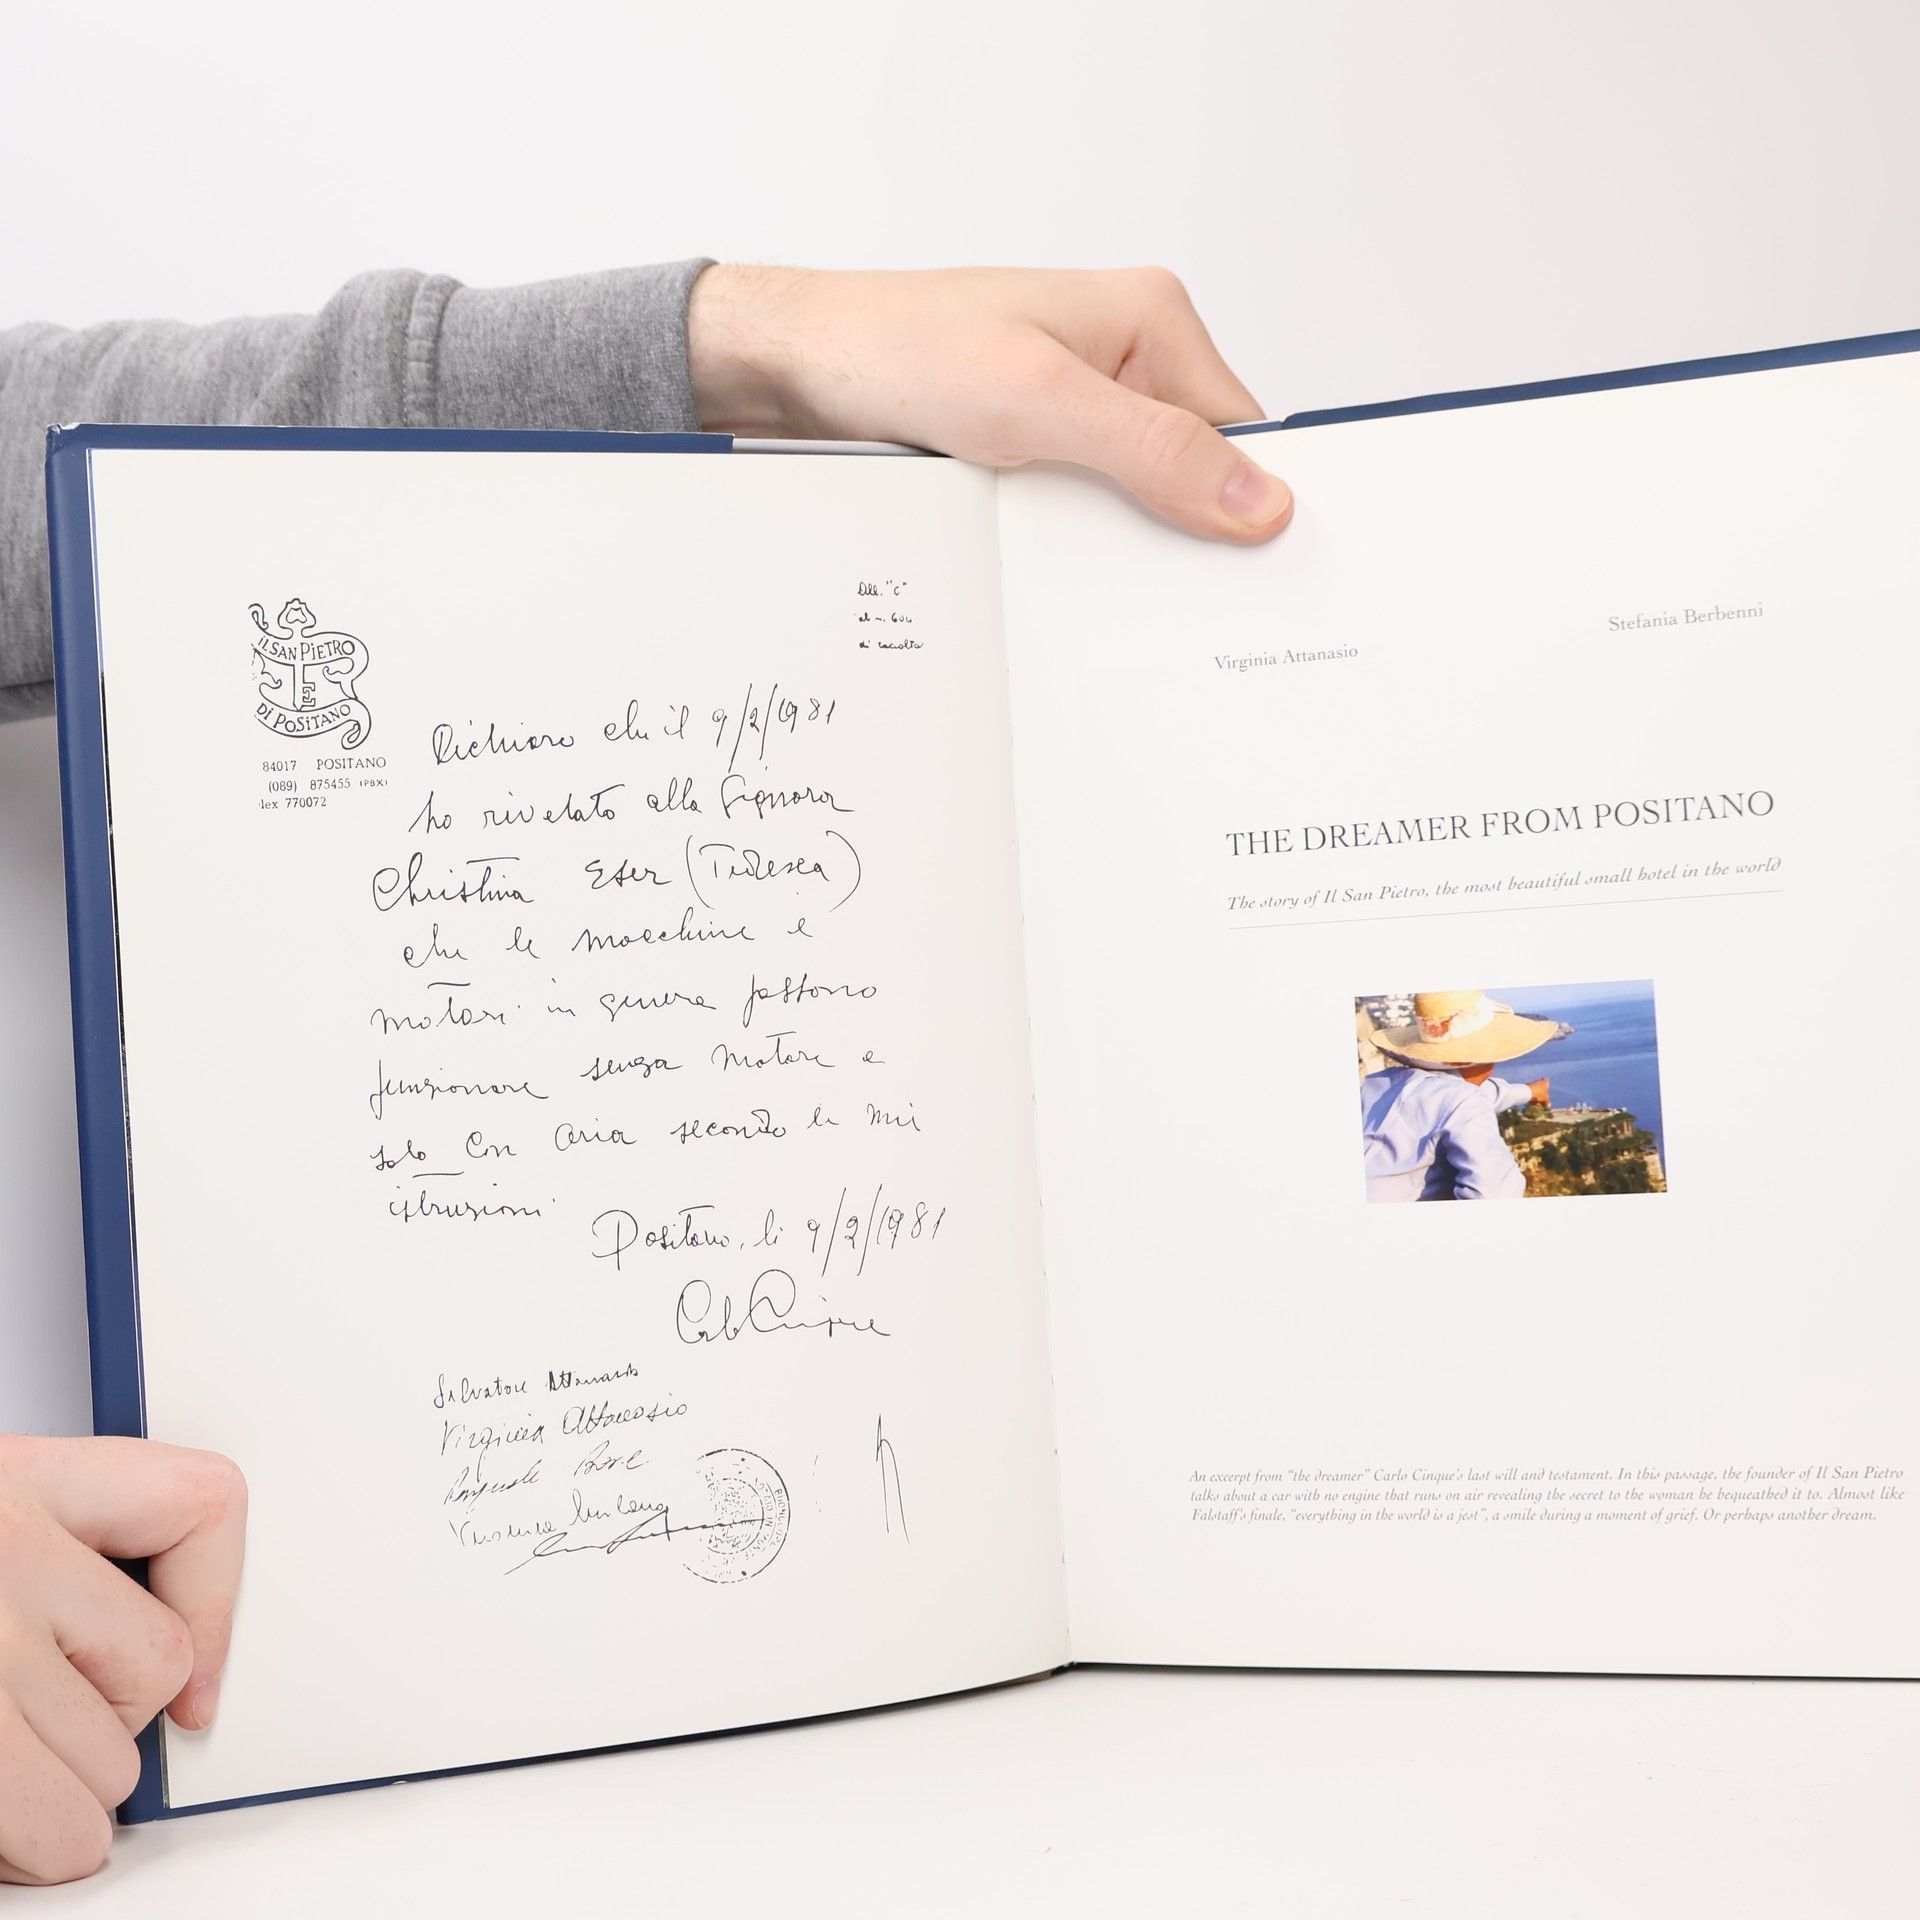 IL SAN PIETRO
DI POSITANO
84017 POSITANO
(089) 875455 (PBX)
lex 770072
All. "C"
al n. 604
di raccolta
Dichiaro che il 9/2/1981
ho rivelato alla Signora
Christina Eser (Tedesca)
che le macchine e
motori in genere possono
funzionare senza motore e
solo con aria secondo le mie
istruzioni.
Positano, li 9/2/1981
Carlo Cinque
Salvatore Attanasio
Virginia Attanasio
Pasquale
Virginia Attanasio
Stefania Berbenni
THE DREAMER FROM POSITANO
The story of Il San Pietro, the most beautiful small hotel in the world
An excerpt from "the dreamer" Carlo Cinque's last will and testament. In this passage, the founder of Il San Pietro
talks about a car with no engine that runs on air revealing the secret to the woman he bequeathed it to. Almost like
Falstaff's finale, "everything in the world is a jest", a smile during a moment of grief. Or perhaps another dream.